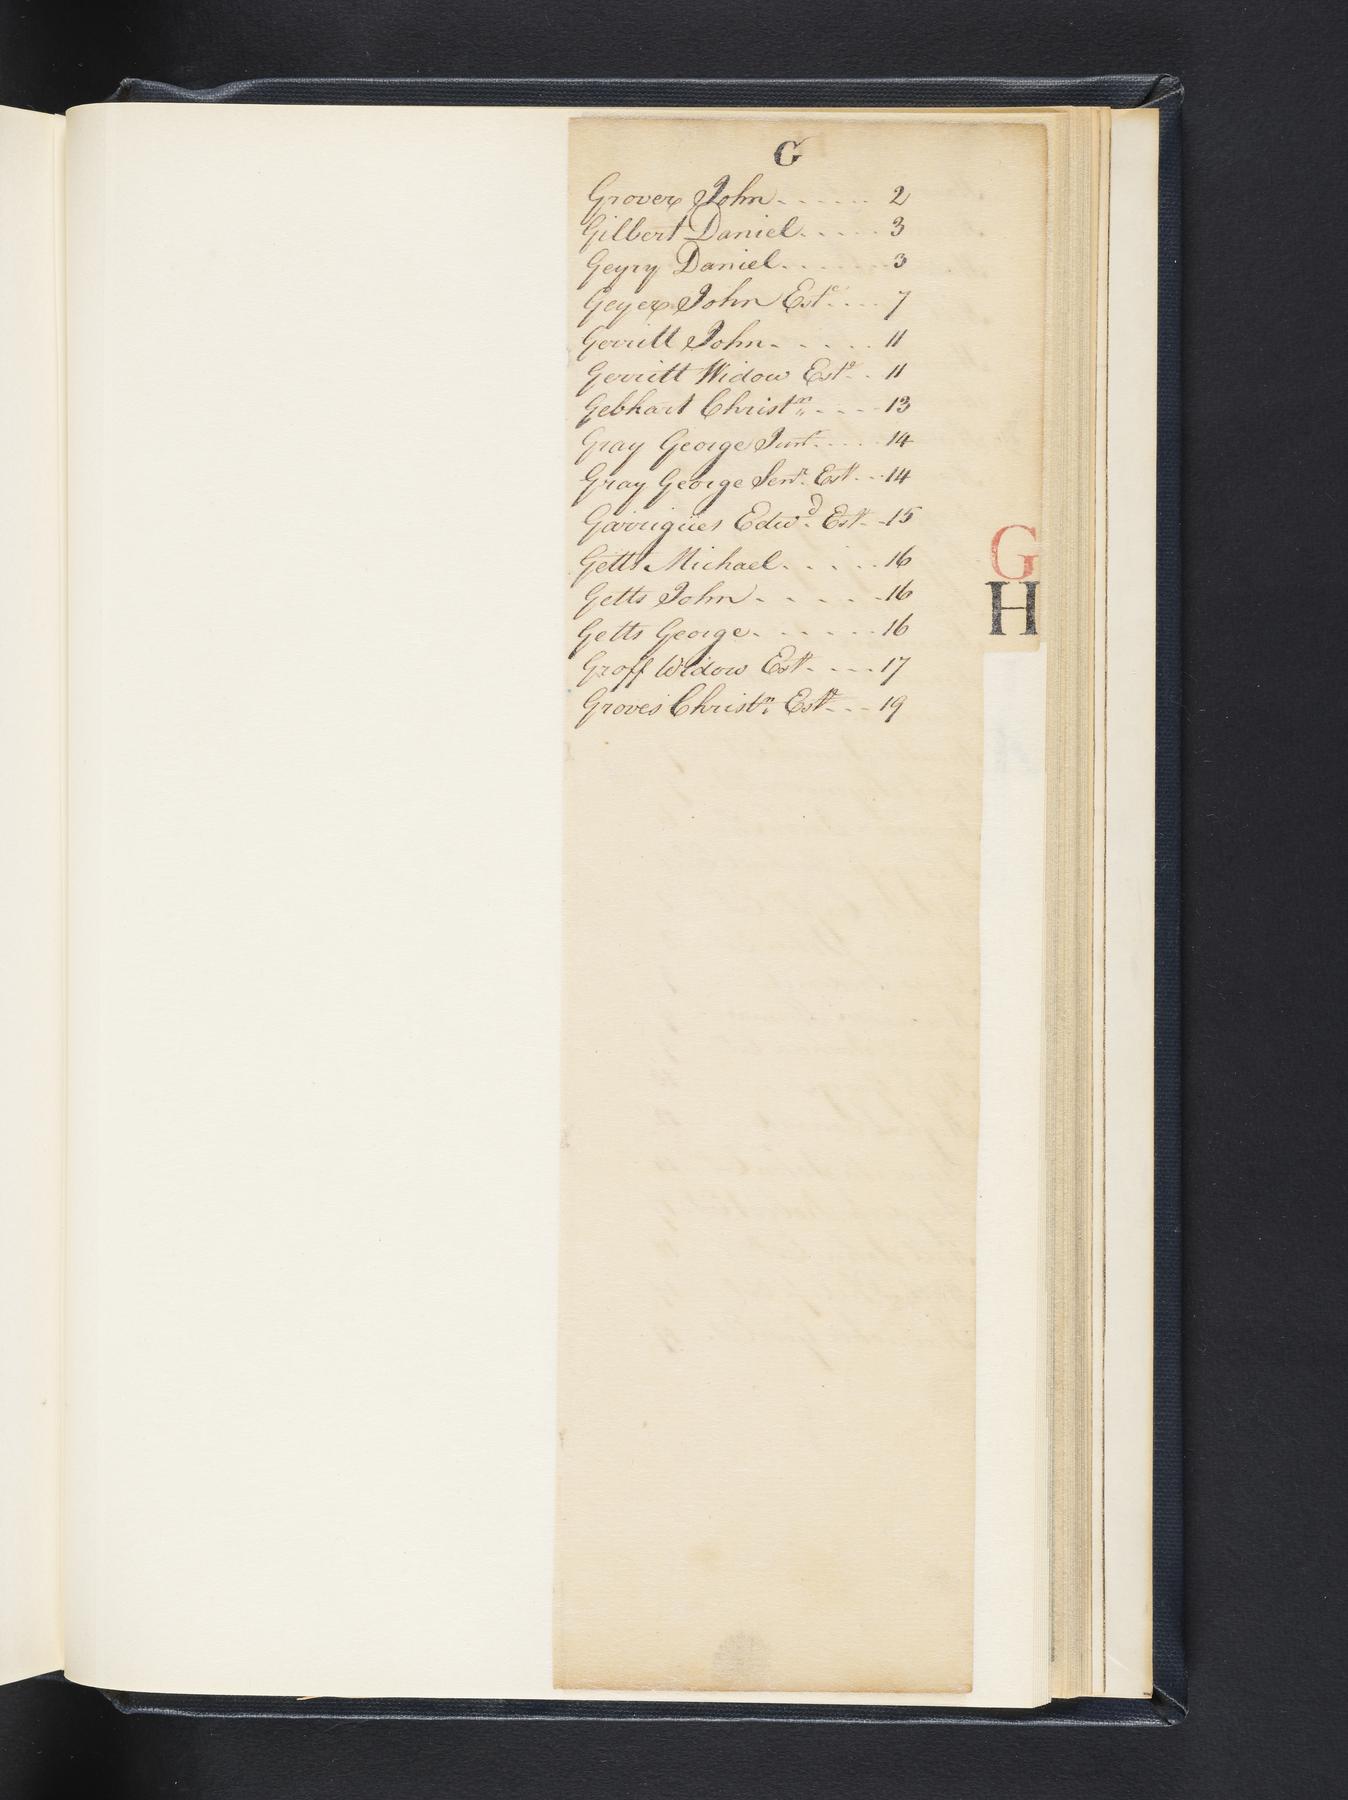 G
Grover John - - - - - - 2
Gilbert Daniel - - - - - 3
Geyry Daniel - - - - - - 3
Geyer John Est.e - - - - 7
Gerritt John - - - - - 11
Gerritt Widow Est.e - - 11
Gebhart Christn - - - - 13
Gray George Junr - - - - 14
Gray George Senr. Este - - 14
Garrigues Edwd. Este - - 15
Getts Michael - - - - - 16
Getts John - - - - - 16
Getts George - - - - - - 16
Groff Widow Este - - - - 17
Groves Christn. Este - - - 19
G
H